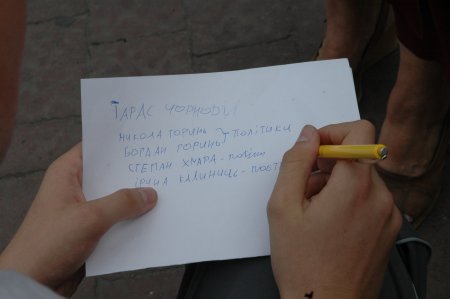 ТАРАС ЧОРНОВІЛ
МИКОЛА ГОРИНЬ } ПОЛІТИКИ
БОГДАН ГОРИНЬ
СТЕПАН ХМАРА -
ІРИНА КАЛИНЕЦЬ - ПОЕТ